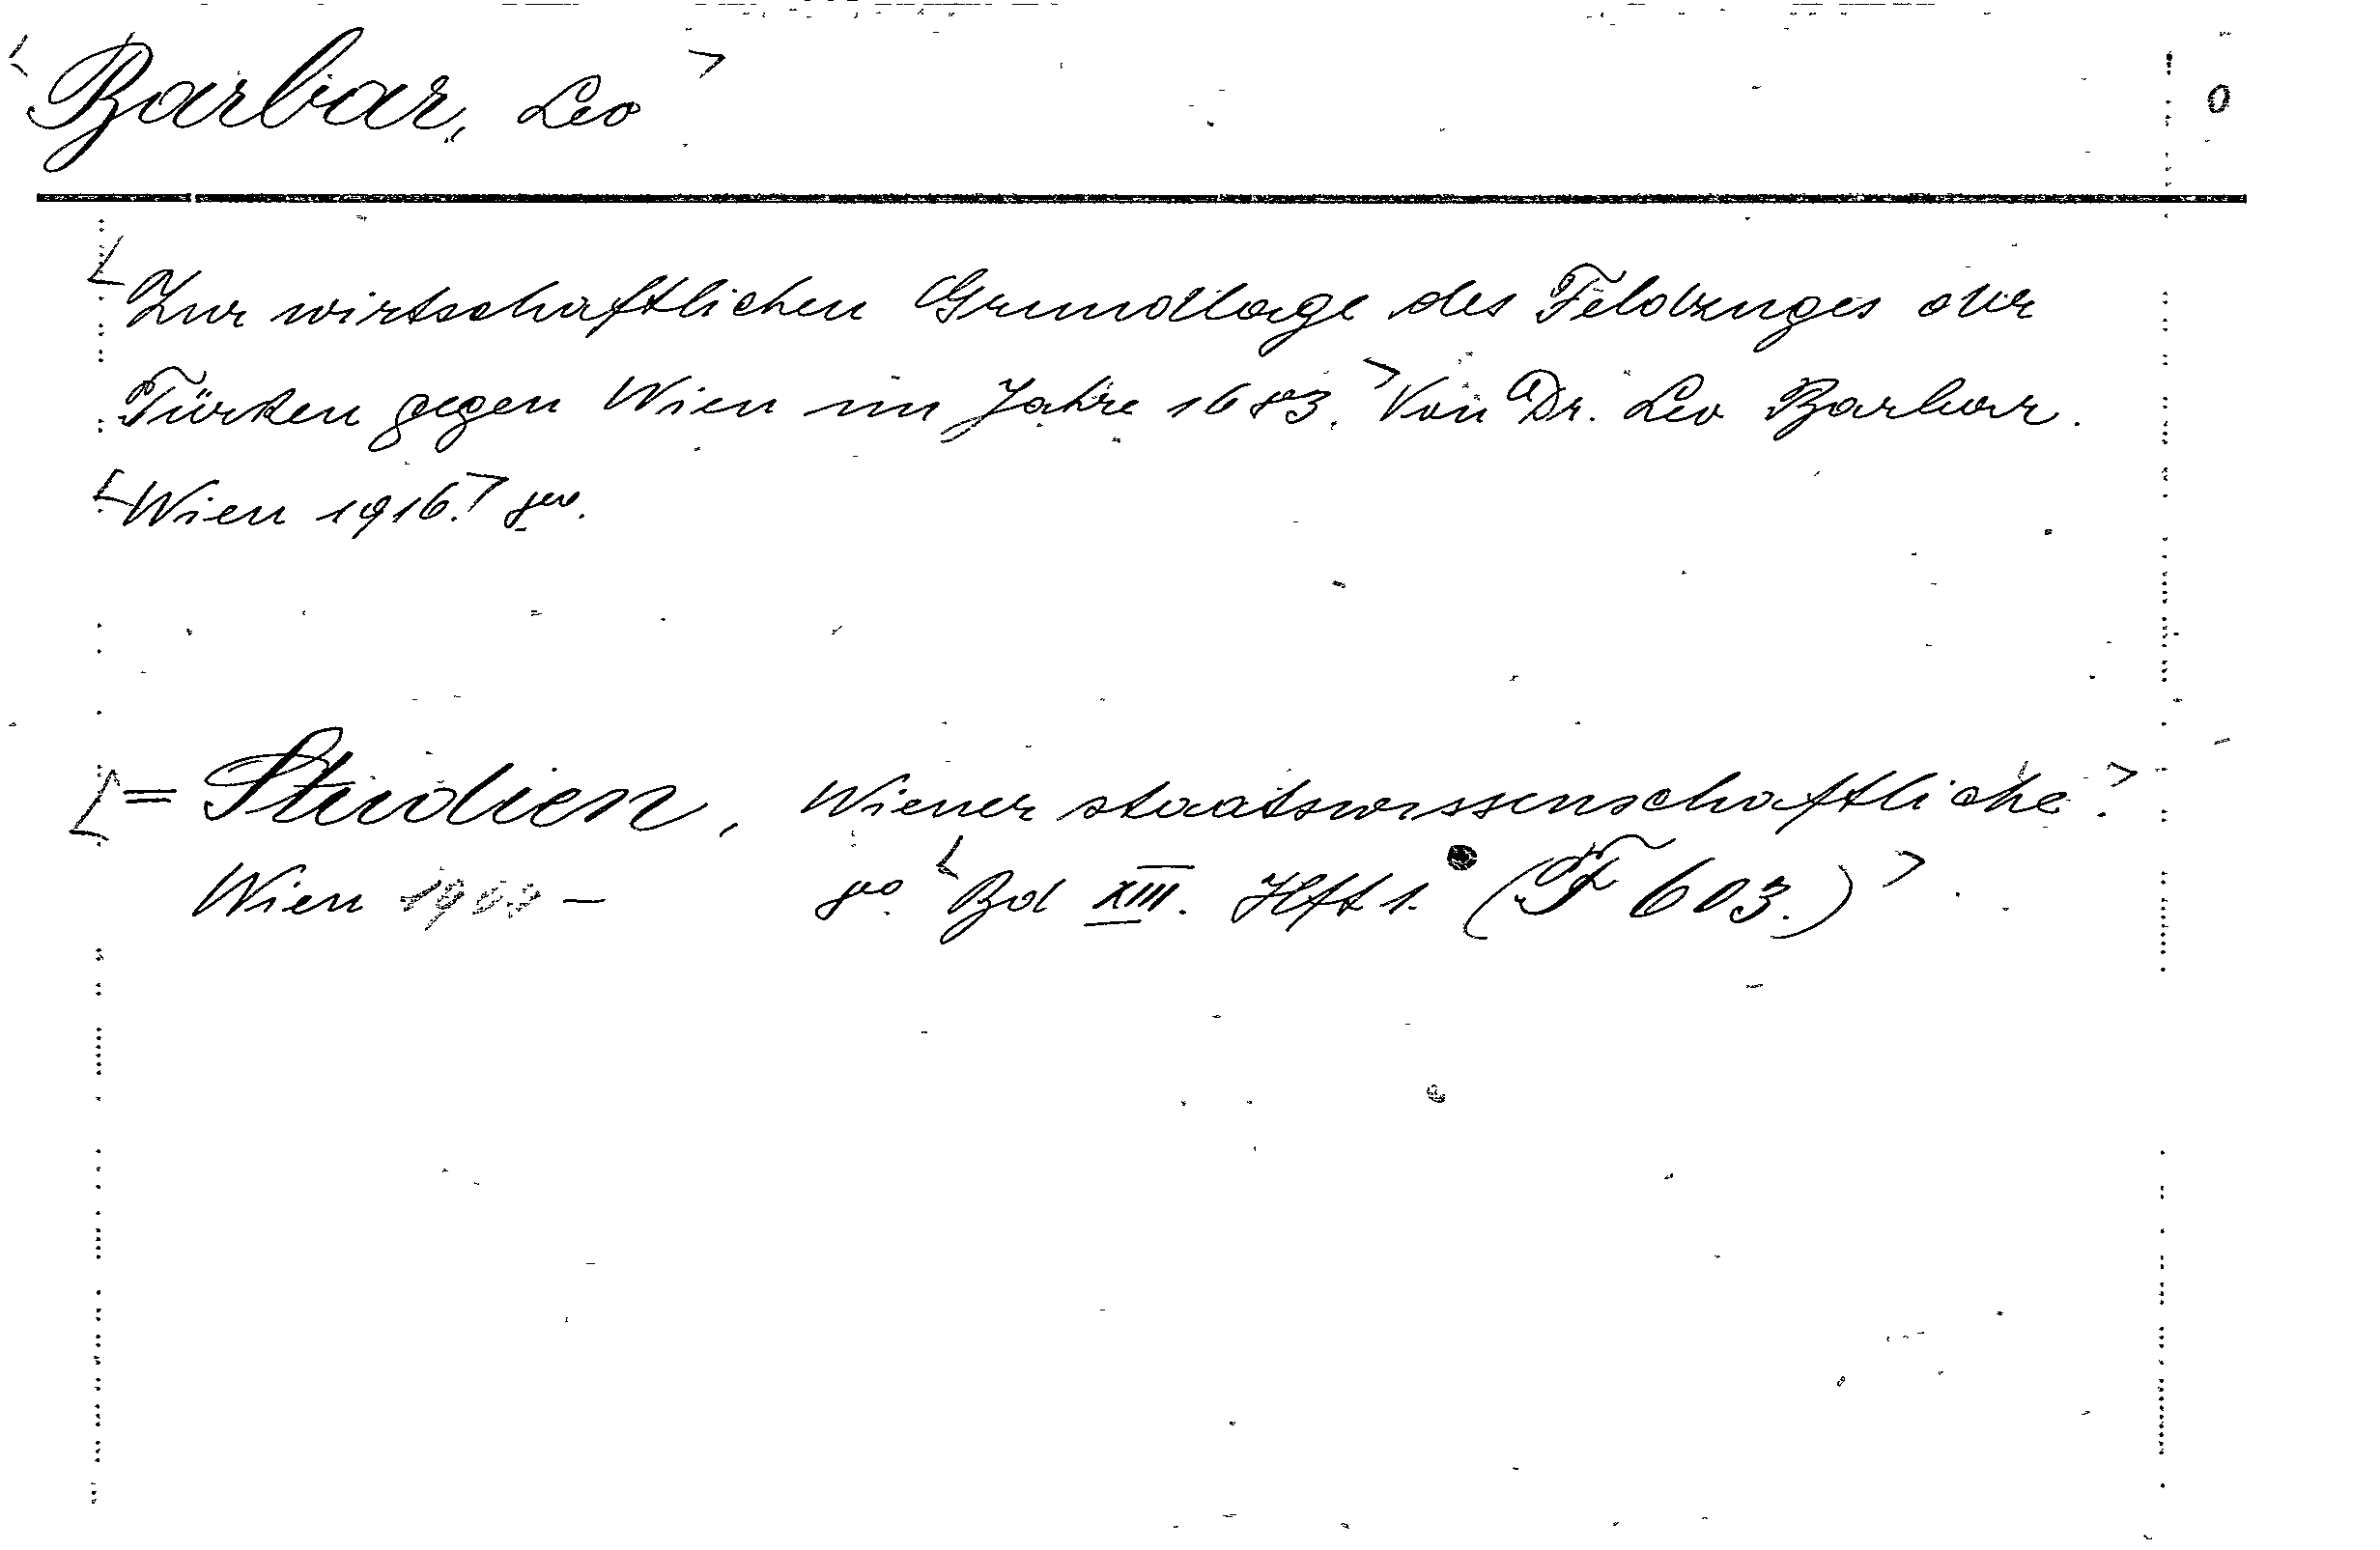 Barbar, Leo
0
Zur wirtschaftlichen Grundlage des Feldzuges der
Türken gegen Wien im Jahre 1683. Von Dr. Leo Barbar.
Wien 1916. 8°.
= Studien, Wiener staatswissenschaftliche.
Wien – 8°. Bd XIII. Hft 1. (F 603.)